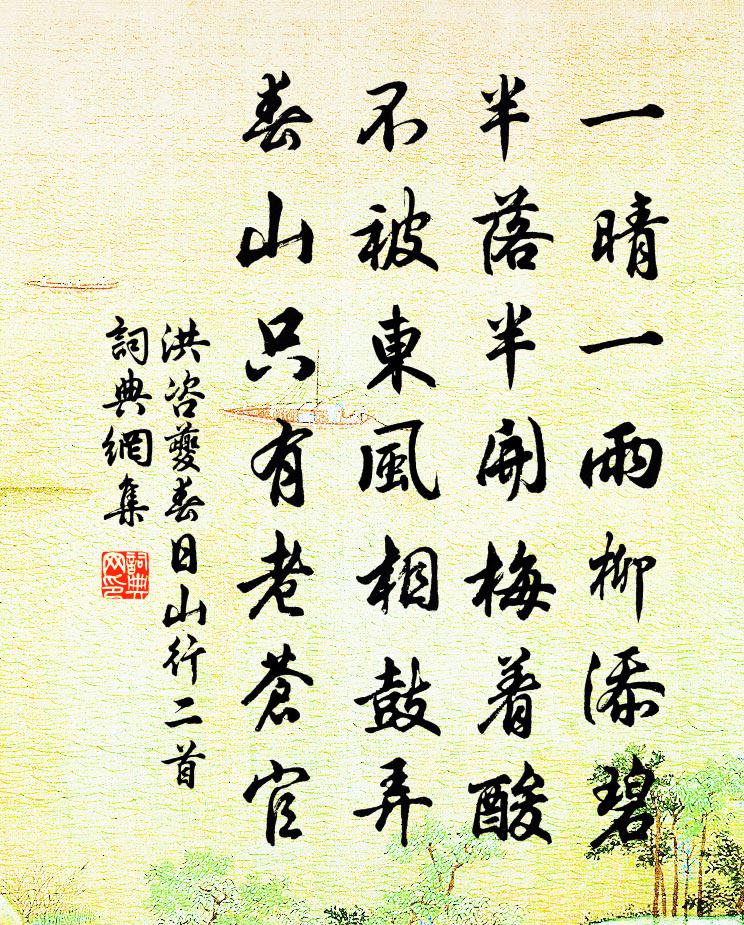 一晴一雨柳添碧
半落半開梅着酸
不被東風相鼓弄
春山只有老蒼官
洪咨夔春日山行二首
詞典網集
詞典
网印